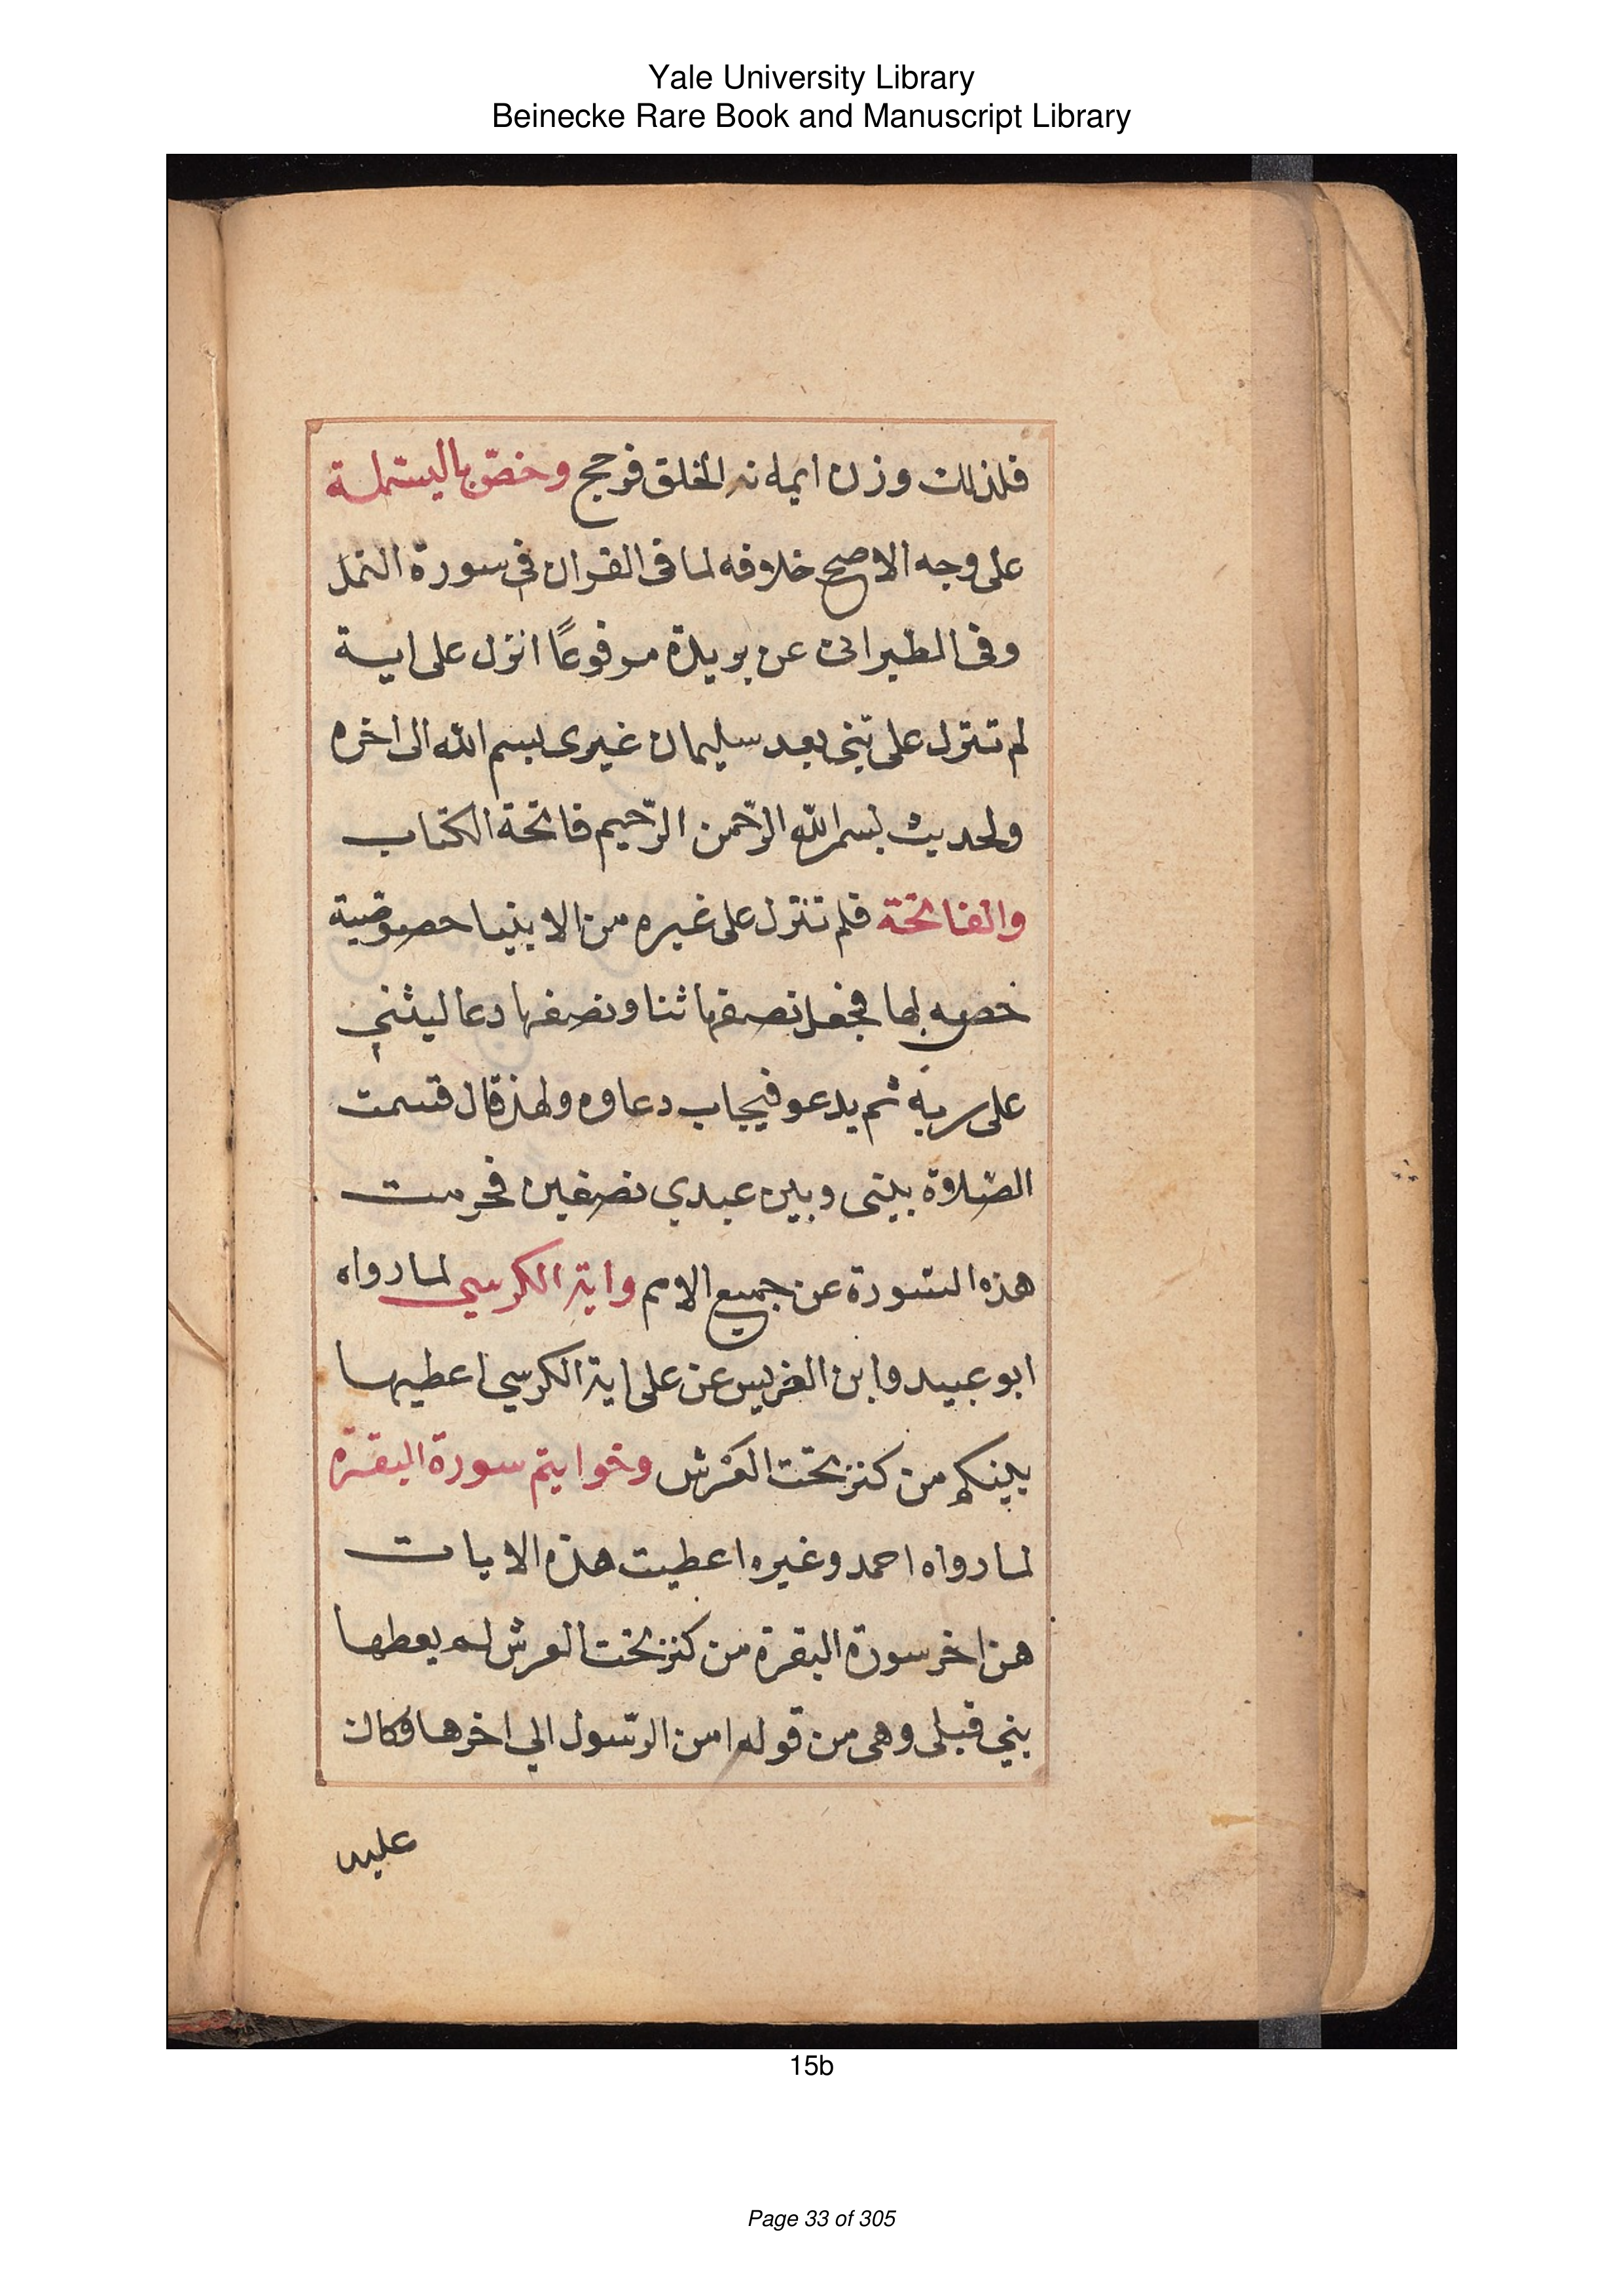 Yale University Library
Beinecke Rare Book and Manuscript Library
فلذلك وزن ايمانه الخلق فرجح وخصّ بالبسملة
على وجه الاصح خلافه لما فى القران في سورة النمل
وفى الطبرانى عن بريدة مرفوعًا انزل على اية
لم تنزل على نبى بعد سليمان غيرى بسم الله الى اخره
ولحديث بسم الله الرّحمن الرّحيم فاتحة الكتاب
والفاتحة فلم تنزل على غيره من الانبيا خصوصية
خصه بها فجعل نصفها ثنا ونصفها دعا ليثني
على ربه ثم يدعو فيجاب دعاوه ولهذ قال قسمت
الصّلاوة بينى وبين عبدي نصفين فحرمت
هذه السّورة عن جميع الامم واية الكرسي لما رواه
ابو عبيد وابن الضريس عن على اية الكرسي اعطيها
بينكم من كنز تحت العرش وخوايتم سورة البقرة
لما رواه احمد وغيره اعطيت هذه الايات
من اخر سورة البقرة من كنز تحت العرش لم يعطها
نبي قبلى وهى من قوله امن الرّسول الي اخرها فكان
عليه
15b
Page 33 of 305